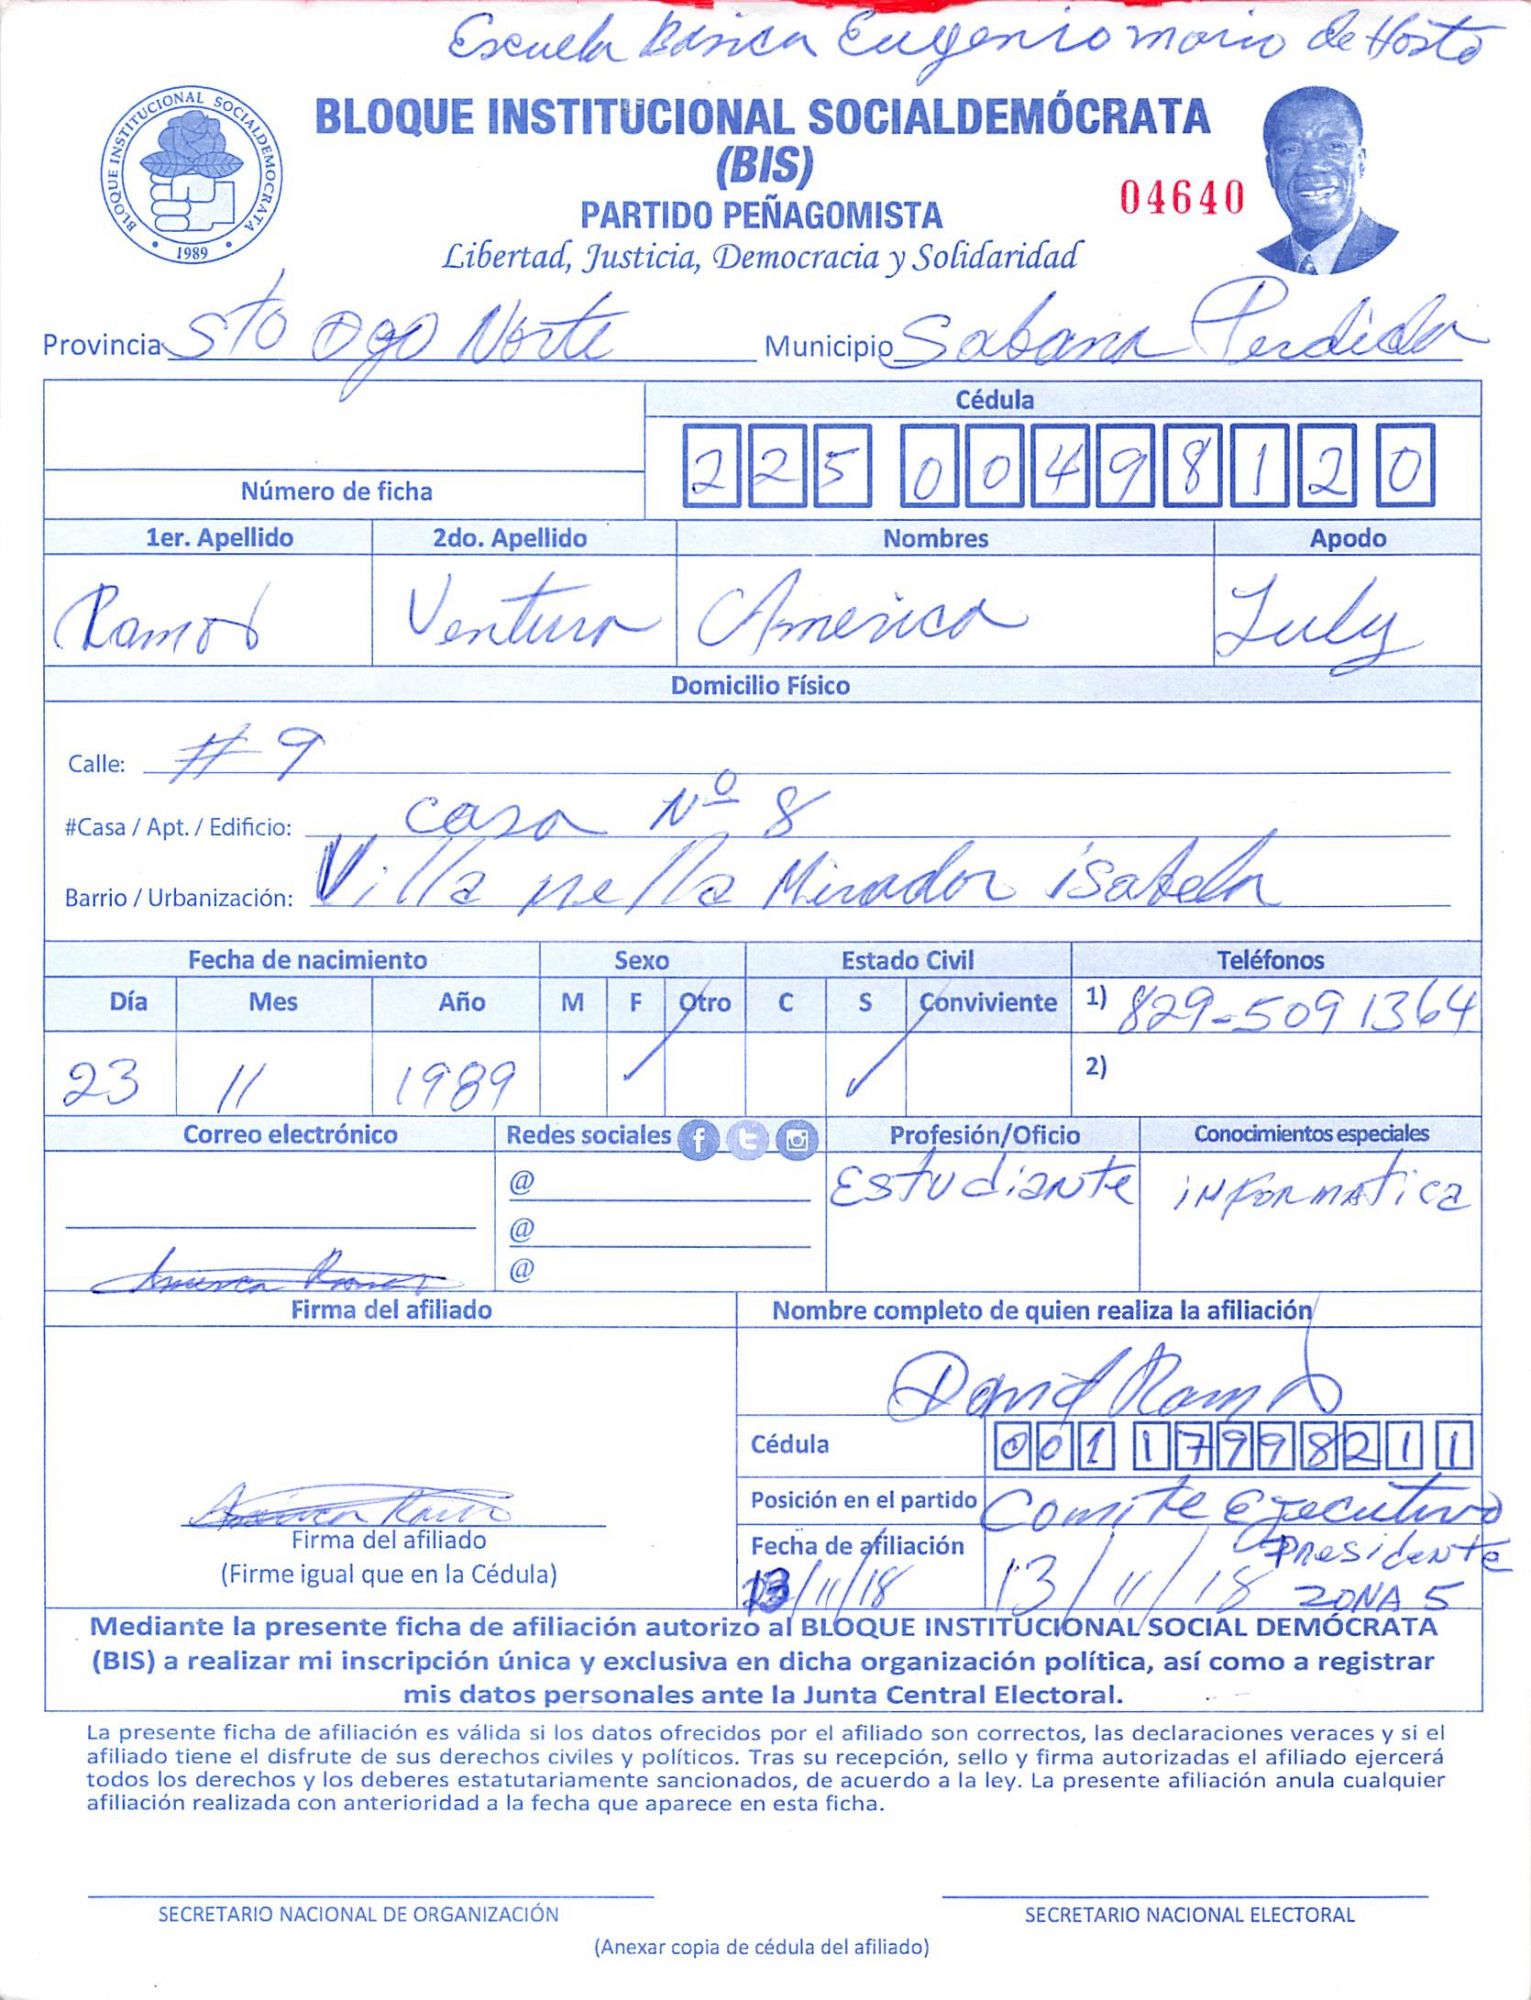 Escuela Básica Eugenio mario de Hosto
BLOQUE INSTITUCIONAL SOCIALDEMÓCRATA
(BIS)
PARTIDO PEÑAGOMISTA
Libertad, Justicia, Democracia y Solidaridad
BLOQUE INSTITUCIONAL SOCIALDEMOCRATA
1989
04640
Provincia Sto Dgo Norte Municipio Sabana Perdida
Cédula
225 0049812 0
Número de ficha
1er. Apellido 2do. Apellido Nombres Apodo
Ramos Ventura America July
Domicilio Físico
Calle: # 9
#Casa / Apt. / Edificio: casa Nº 8
Barrio / Urbanización: Villa mella Mirador isabela
Fecha de nacimiento Sexo Estado Civil Teléfonos
Día Mes Año M F Otro C S Conviviente 1) 829-509 1364
23 11 1989 ✓ ✓ 2)
Correo electrónico Redes sociales Profesión/Oficio Conocimientos especiales
@ Estudiante informatica
@
@
America Ramos
Firma del afiliado Nombre completo de quien realiza la afiliación
David Ramos
Cédula 001 1799821 1
America Ramos
Firma del afiliado
(Firme igual que en la Cédula)
Posición en el partido Comite Ejecutivo
Presidente
ZONA 5
Fecha de afiliación
13/11/18 13/11/18
Mediante la presente ficha de afiliación autorizo al BLOQUE INSTITUCIONAL SOCIAL DEMÓCRATA
(BIS) a realizar mi inscripción única y exclusiva en dicha organización política, así como a registrar
mis datos personales ante la Junta Central Electoral.
La presente ficha de afiliación es válida si los datos ofrecidos por el afiliado son correctos, las declaraciones veraces y si el
afiliado tiene el disfrute de sus derechos civiles y políticos. Tras su recepción, sello y firma autorizadas el afiliado ejercerá
todos los derechos y los deberes estatutariamente sancionados, de acuerdo a la ley. La presente afiliación anula cualquier
afiliación realizada con anterioridad a la fecha que aparece en esta ficha.
SECRETARIO NACIONAL DE ORGANIZACIÓN SECRETARIO NACIONAL ELECTORAL
(Anexar copia de cédula del afiliado)